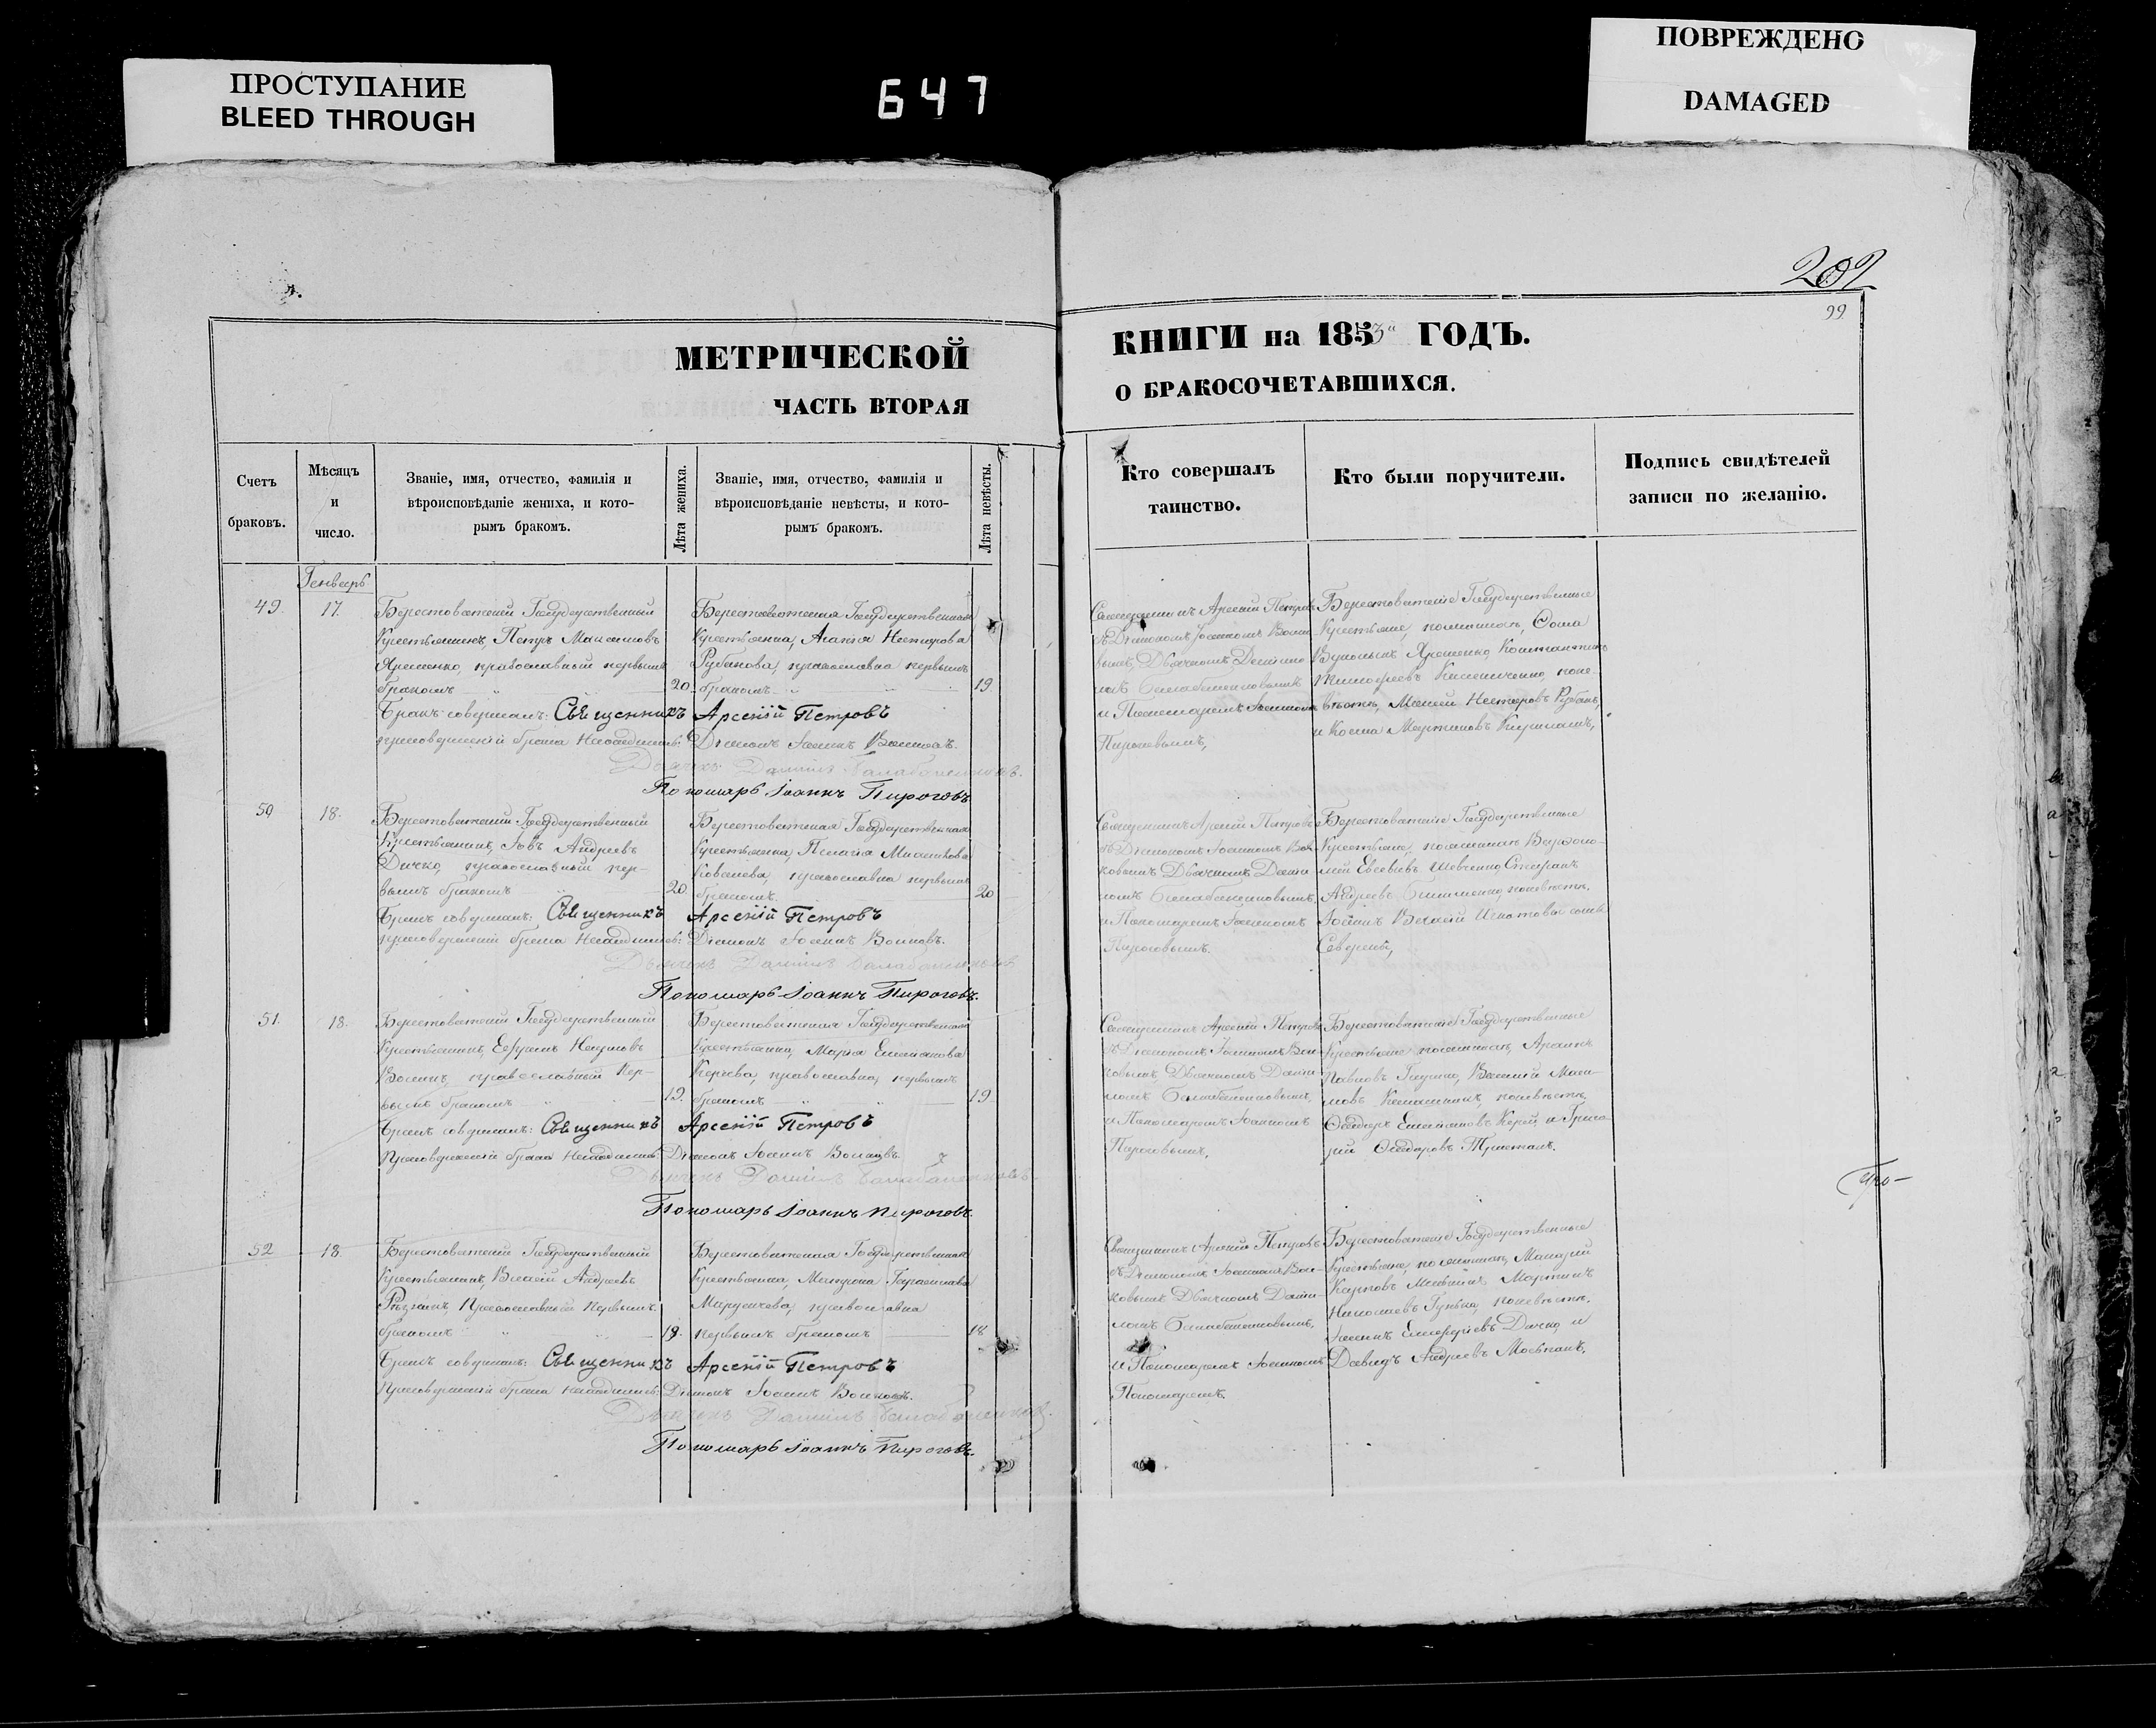 ПРОСТУПАНИЕ
BLEED THROUGH
647
ПОВРЕЖДЕНО
DAMAGED
202
99
МЕТРИЧЕСКОЙ
ЧАСТЬ ВТОРАЯ
КНИГИ на 1853 ГОДЪ.
О БРАКОСОЧЕТАВШИХСЯ.
Счетъ
браковъ.
Мѣсяцъ
и
число.
Званіе, имя, отчество, фамилія и
вѣроисповѣданіе жениха, и кото-
рымъ бракомъ.
Лѣта жениха.
Званіе, имя, отчество, фамилія и
вѣроисповѣданіе невѣсты, и кото-
рымъ бракомъ.
Лѣта невѣсты.
Кто совершалъ
таинство.
Кто были поручители.
Подпись свидѣтелей
записи по желанію.
Генварь
49.
17.
Берестоватскій Государственный
Крестьянинъ, Петръ Максимовъ
Яременко, православный первымъ
бракомъ
20
Берестоватская Государственная
Крестьянка, Агатія Нестерова
Рубанова, православна первымъ
бракомъ
19
Священникъ Арсеній Петровъ
съ Діакономъ Іоанномъ Волко
вымъ, Дьячкомъ Даніи
ломъ Балабаненковымъ
и Пономаремъ Іоанномъ
Пироговымъ,
Берестоватскіе Государственные
Крестьяне, по женихѣ, Фома
Яременко, Константинъ
Тимофеевъ по не-
вѣстѣ, Нестеровъ Рубанъ,
и Косма Мартиновъ
Бракъ совершалъ: Священникъ Арсеній Петровъ
при совершеніи брака находились: Діаконъ Іоаннъ Волковъ.
Дьячекъ Даніилъ Балабаненковъ.
Пономарь Іоаннъ Пироговъ
50
18.
Берестоватскій Государственный
Крестьянинъ, Іовъ Андреевъ
Дичко, православный пер-
вымъ бракомъ
20
Берестоватская Государственная
Крестьянка, Пелагія
православна первымъ
бракомъ
20
Священникъ Арсеній Петровъ
съ Діакономъ Іоанномъ Вол-
ковымъ Дьячкомъ Даніи-
ломъ Балабаненковымъ,
и Пономаремъ Іоанномъ
Пироговымъ.
Берестоватскіе Государственные
Крестьяне, по женихѣ Варфоло-
мей Евсевіевъ Шевченко, Стефанъ
Андреевъ по невѣстѣ,
Іоаннъ
Бракъ совершалъ: Священникъ Арсеній Петровъ
при совершеніи брака находились: Діаконъ Іоаннъ Волковъ.
Дьячекъ Даніилъ Балабаненковъ
Пономарь Іоаннъ Пироговъ.
51.
18.
Берестоватскій Государственный
Крестьянинъ, Ефремъ Наумовъ
православный пер-
вымъ бракомъ
19.
Берестоватская Государственная
Крестьянка, Марія Емельянова
православна, первымъ
бракомъ
19
Священникъ Арсеній Петровъ
съ Діакономъ Іоанномъ Вол-
ковымъ, Дьячкомъ Даніи-
ломъ Балабаненковымъ,
и Пономаремъ Іоанномъ
Пироговымъ.
Берестоватскіе Государственные
Крестьяне по женихѣ,
Павловъ Василій Мак-
мовъ по невѣстѣ,
Феодоръ Емельяновъ и Григо-
рій Феодоровъ
Бракъ совершалъ: Священникъ Арсеній Петровъ
При совершеніи брака находились: Діаконъ Іоаннъ Волковъ.
Дьячекъ Даніилъ Балабаненковъ.
Пономарь Іоаннъ Пироговъ.
52
18
Берестоватскій Государственный
Крестьянинъ, Власій Андреевъ
Рѣзникъ Православный первымъ
бракомъ
19.
Берестоватская Государственная
Крестьянка, Матрона Герасимова
православна
первымъ бракомъ
18
Священникъ Арсеній Петровъ
съ Діакономъ Іоанномъ Вол-
ковымъ Дьячкомъ Даніи-
ломъ Балабаненковымъ,
и Пономаремъ Іоанномъ
Пономаремъ.
Берестоватскіе Государственные
Крестьяне, по женихѣ, Макарій
Карповъ Мартинъ
Николаевъ по невѣстѣ,
Дичко, и
Давидъ Андреевъ
Бракъ совершалъ: Священникъ Арсеній Петровъ
При совершеніи брака находились: Діаконъ Іоаннъ Волковъ.
Дьячекъ Даніилъ Балабаненковъ.
Пономарь Іоаннъ Пироговъ.